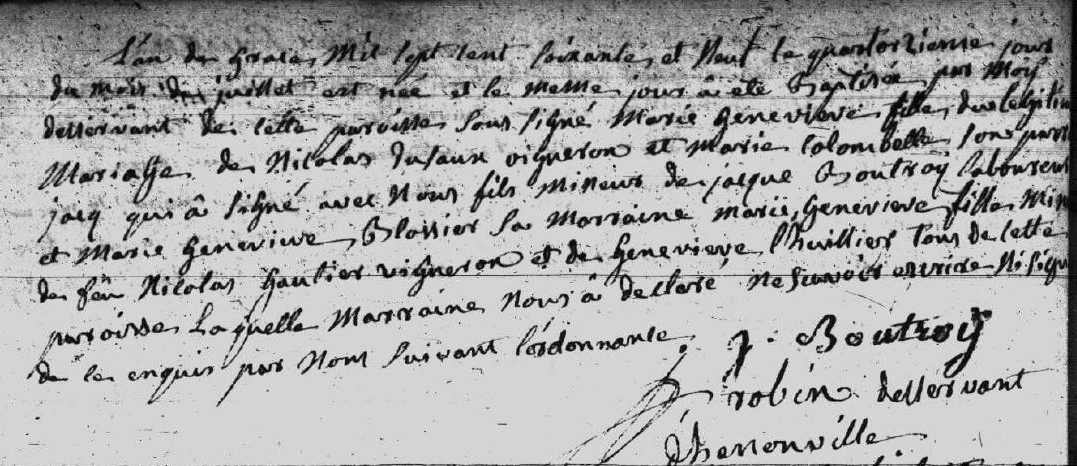 L'an de grace Mil sept cent soixante et Neuf le quatorzieme jour
du mois de juillet est née et le meme jour a été Baptisée par Moy
desservant de cette paroisse sous signé Marie Genevieve fille du legitim
Mariage de Nicolas dufaux vigneron et Marie Colombelle son parr
jacq qui a signé avec Nous fils Mineur de jacque Boutroy laboureur
et Marie Genevieve Glossier sa Marraine Marie Genevieve fille Min
de feu Nicolas Gautier vigneron et de Genevieve Lhuillier tous de cette
paroisse laquelle Marraine Nous a declaré ne sçavoir ecrire Ni sign
de ce enquis par Nous suivant l'ordonnance.
j. Boutroy
robin desservant
d'henonville